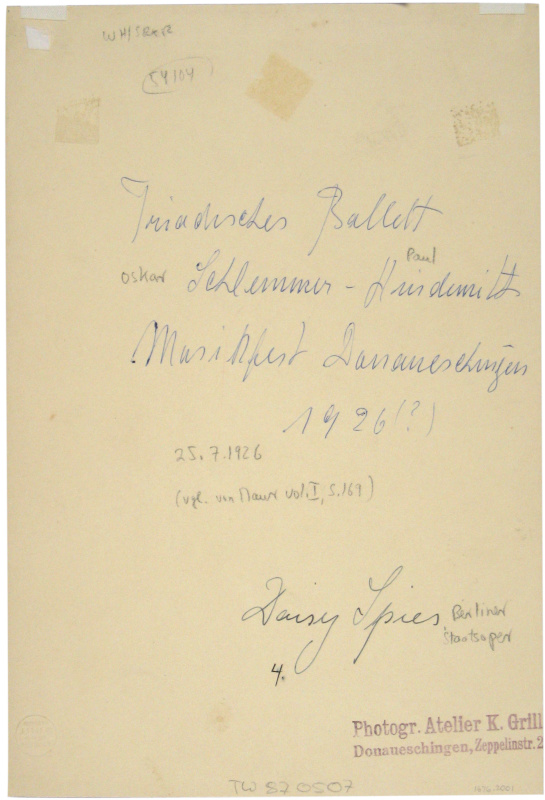 54104
Triadisches Ballett
Oskar Schlemmer - Paul Hindemith
Musikfest Donaueschingen
1926(?)
25.7.1926
(vgl. von Maur vol. I, S.169)
Daisy Spies Berliner
Staatsoper
4.
Photogr. Atelier K. Grill
Donaueschingen, Zeppelinstr. 2
TW 820507